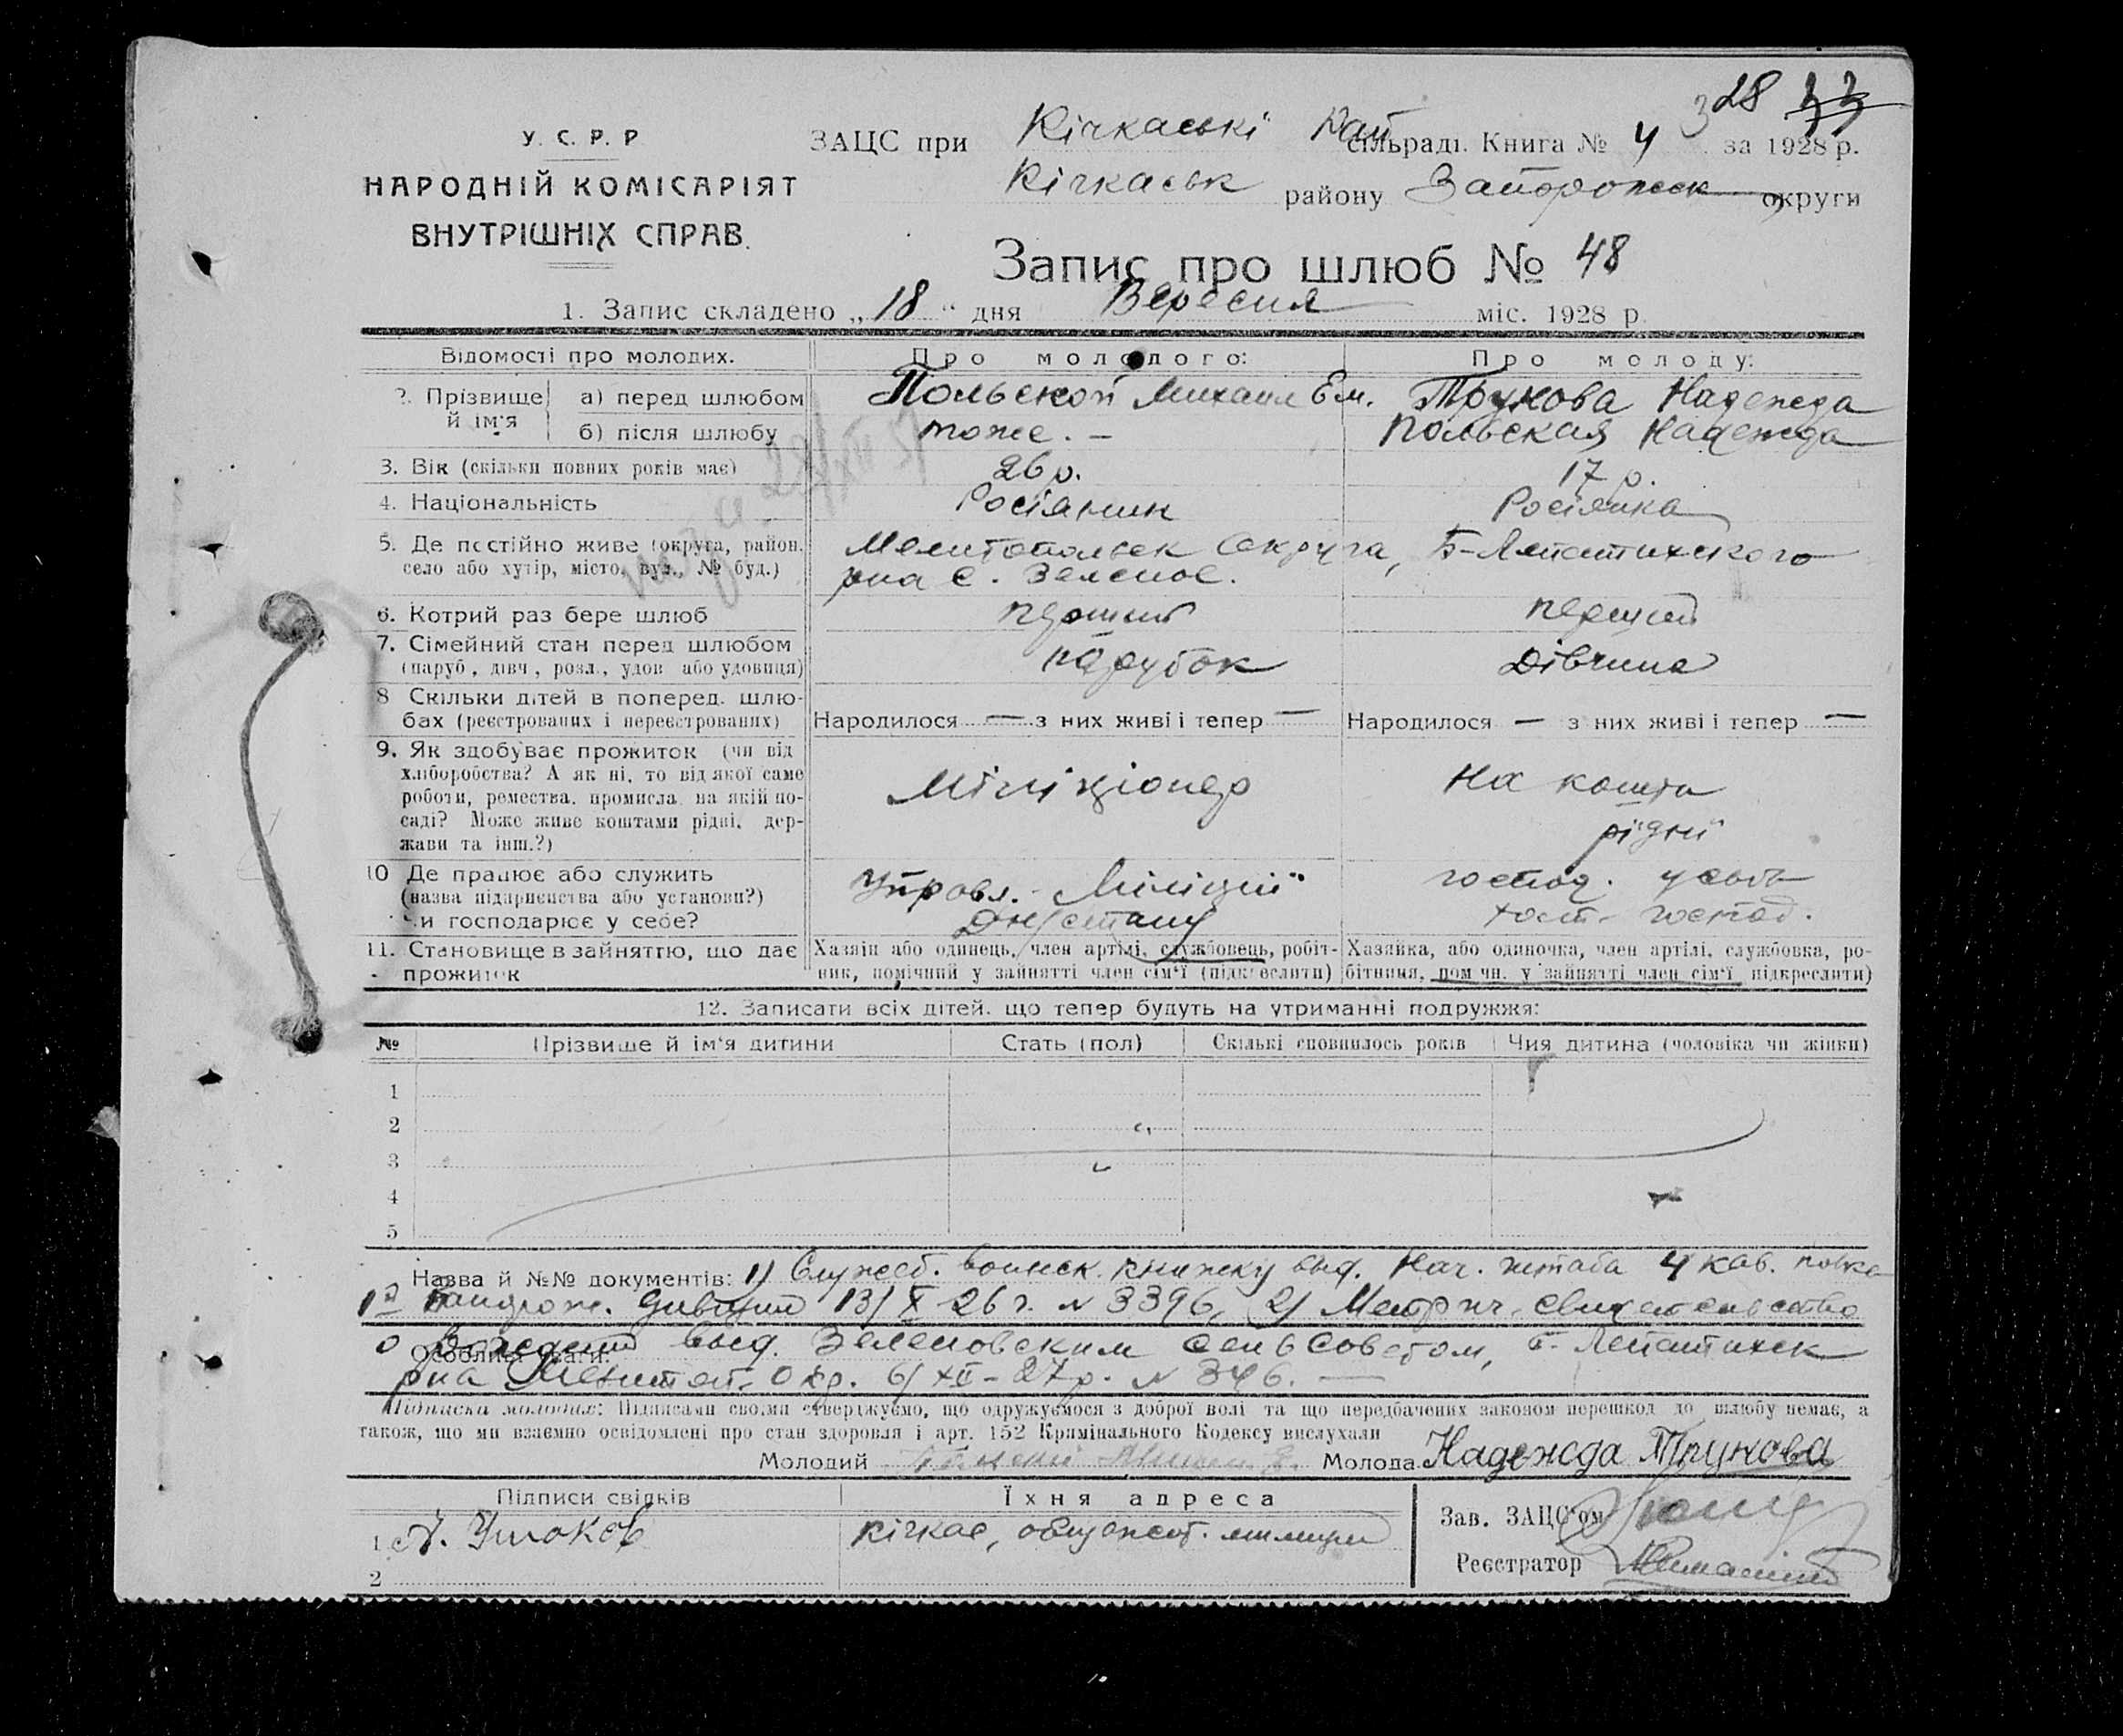 328 33
У. С. Р. Р
НАРОДНІЙ КОМІСАРІЯТ
ВНУТРІШНІХ СПРАВ.
ЗАЦС при Кічкаські Рай сільраді. Книга № 4 за 1928 р.
Кічкаськ району Запорожск округи
Запис про шлюб № 48
1. Запис складено „18“ дня Вересня міс. 1928 р.
Відомості про молодих. Про молодого: Про молоду:
2. Прізвище й ім'я а) перед шлюбом Польской Михаил Ем. Трунова Надежда
б) після шлюбу тоже. – Польская Надежда
3. Вік (скільки повних років має) 26 р. 17 р.
4. Національність Росіянин Росіянка
5. Де постійно живе (округа, район, село або хутір, місто, вул., № буд.) Мелитопольск Округа, Б-Лепетихского
рна с. Зеленое.
6. Котрий раз бере шлюб перший перший
7. Сімейний стан перед шлюбом (паруб., дівч., розл., удов. або удовиця) парубок Дівчина
8 Скільки дітей в поперед. шлюбах (реєстрованих і нереєстрованих) Народилося — з них живі і тепер — Народилося — з них живі і тепер —
9. Як здобуває прожиток (чи від
хліборобства? А як ні, то від якої саме
роботи, ремества, промисла, на якій по-
саді? Може живе коштами рідні, дер-
жави та інш.?)
Міліціонер
На кошти
рідні
10 Де працює або служить
(назва підприємства або установи?)
Чи господарює у себе?
Управл. Міліції
Дн/стану
господ. у
госпад.
11. Становище в зайняттю, що дає
прожиток
Хазяїн або одинець, член артілі, службовець, робіт-
ник, помічний у зайнятті член сім'ї (підкреслити)
Хазяйка, або одиночка, член артілі, службовка, ро-
бітниця, помічн. у зайнятті член сім'ї підкреслити)
12. Записати всіх дітей, що тепер будуть на утриманні подружжя:
№ Прізвище й ім'я дитини Стать (пол) Скількі сповнилось років Чия дитина (чоловіка чи жінки)
1
2
3
4
5
Назва й №№ документів: 1) Служеб. воинск. книжку выд. Нач. штаба 4 кав. полка
1й Запорож. дивизии 13/X 26 г. № 3396, 2) Метрич. свидетельство
Особливі уваги: о рождении выд. Зеленовским сельсоветом, Б-Лепетихск
рна Мелитоп. Окр. 6/XII-27 р. № 346.
Підписки молодих: Підписами своїми стверджуємо, що одружуємося з доброї волі та що передбачених законом перешкод до шлюбу немає, а
також, що ми взаємно освідомлені про стан здоровля і арт. 152 Крімінального Кодексу вислухали
Молодий Молода Надежда Трунова
Підписи свідків Їхня адреса
1 А. Ушаков Кічкас, общежит. милиции
2
Зав. ЗАЦС'ом
Реєстратор